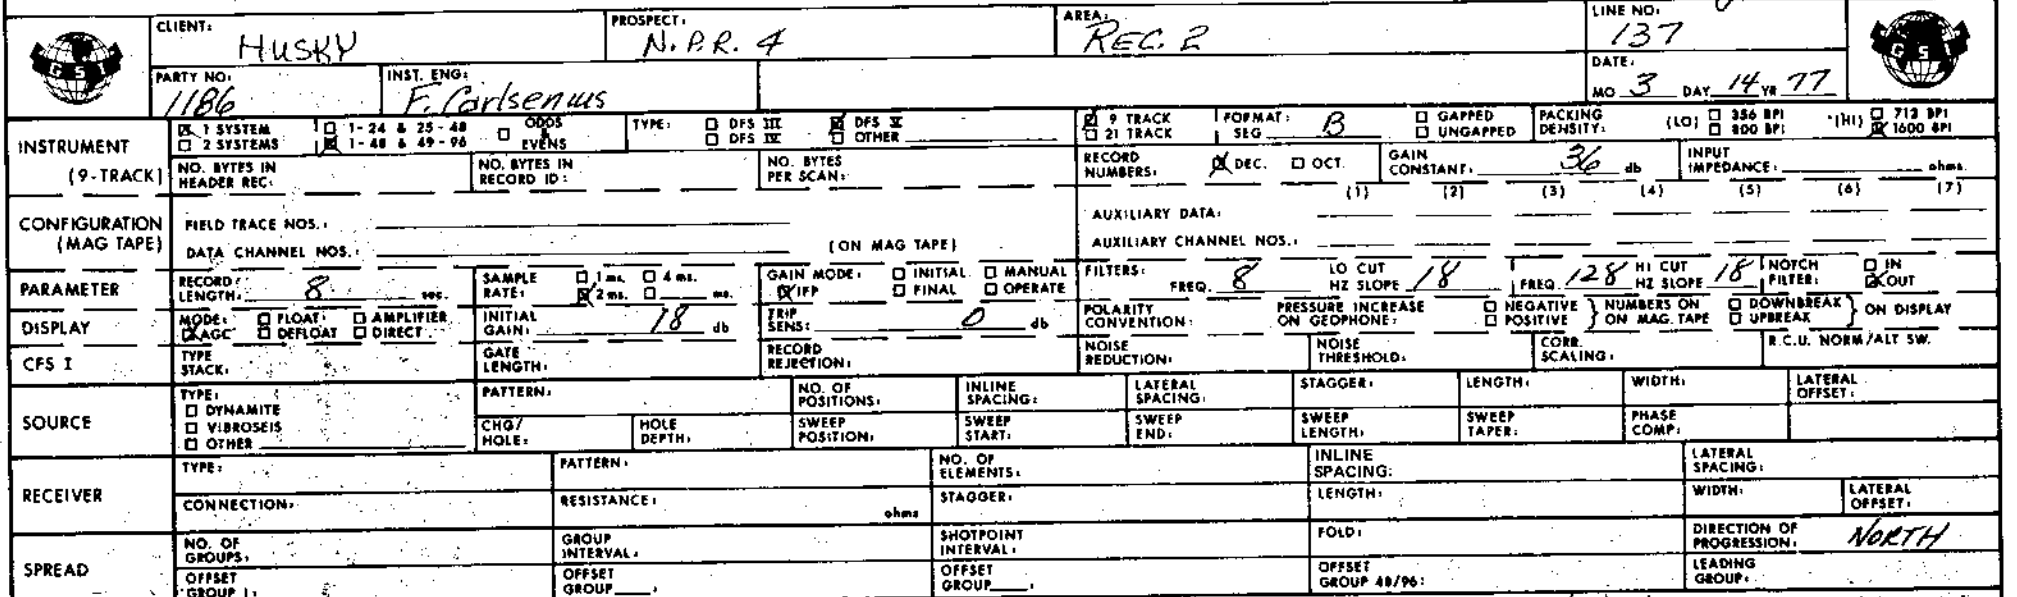 CLIENT: HUSKY PROSPECT: N.P.R. 4 AREA: REC. 2 LINE NO: 137
GSI GSI
PARTY NO: 1186 INST. ENG: F. Carlsenius DATE: MO 3 DAY 14 YR 77
INSTRUMENT ☒ 1 SYSTEM ☐ 1-24 & 25-48 ☐ ODDS & EVENS TYPE: ☐ DFS III ☒ DFS V ☒ 9 TRACK FORMAT: SEG B ☐ GAPPED PACKING DENSITY: (LO) ☐ 356 BPI *(HI) ☐ 712 BPI
☐ 2 SYSTEMS ☒ 1-48 & 49-96 ☐ DFS IV ☐ OTHER ☐ 21 TRACK ☐ UNGAPPED ☐ 800 BPI ☒ 1600 BPI
(9-TRACK) NO. BYTES IN HEADER REC: NO. BYTES IN RECORD ID: NO. BYTES PER SCAN: RECORD NUMBERS: ☒ DEC. ☐ OCT. GAIN CONSTANT: 36 db INPUT IMPEDANCE: ohms.
(1) (2) (3) (4) (5) (6) (7)
CONFIGURATION FIELD TRACE NOS.: AUXILIARY DATA:
(MAG TAPE) DATA CHANNEL NOS.: (ON MAG TAPE) AUXILIARY CHANNEL NOS.:
PARAMETER RECORD LENGTH: 8 sec. SAMPLE RATE: ☐ 1 ms. ☐ 4 ms. ☒ 2 ms. ☐ ms. GAIN MODE: ☐ INITIAL ☐ MANUAL ☒ IFP ☐ FINAL ☐ OPERATE FILTERS: FREQ. 8 LO CUT HZ SLOPE 18 FREQ. 128 HI CUT HZ SLOPE 18 NOTCH FILTER: ☐ IN ☒ OUT
DISPLAY MODE: ☐ FLOAT ☐ AMPLIFIER ☒ AGC ☐ DEFLOAT ☐ DIRECT INITIAL GAIN: 18 db TRIP SENS: 0 db POLARITY CONVENTION: PRESSURE INCREASE ON GEOPHONE: ☐ NEGATIVE ☐ POSITIVE } NUMBERS ON ON MAG. TAPE ☐ DOWNBREAK ☐ UPBREAK } ON DISPLAY
CFS I TYPE STACK: GATE LENGTH: RECORD REJECTION: NOISE REDUCTION: NOISE THRESHOLD: CORR. SCALING: R.C.U. NORM/ALT SW.
SOURCE TYPE: ☐ DYNAMITE ☐ VIBROSEIS ☐ OTHER PATTERN: NO. OF POSITIONS: INLINE SPACING: LATERAL SPACING: STAGGER: LENGTH: WIDTH: LATERAL OFFSET:
CHG/HOLE: HOLE DEPTH: SWEEP POSITION: SWEEP START: SWEEP END: SWEEP LENGTH: SWEEP TAPER: PHASE COMP:
RECEIVER TYPE: PATTERN: NO. OF ELEMENTS: INLINE SPACING: LATERAL SPACING:
CONNECTION: RESISTANCE: ohms STAGGER: LENGTH: WIDTH: LATERAL OFFSET:
SPREAD NO. OF GROUPS: GROUP INTERVAL: SHOTPOINT INTERVAL: FOLD: DIRECTION OF PROGRESSION: NORTH
OFFSET GROUP 1: OFFSET GROUP : OFFSET GROUP : OFFSET GROUP 48/96: LEADING GROUP: